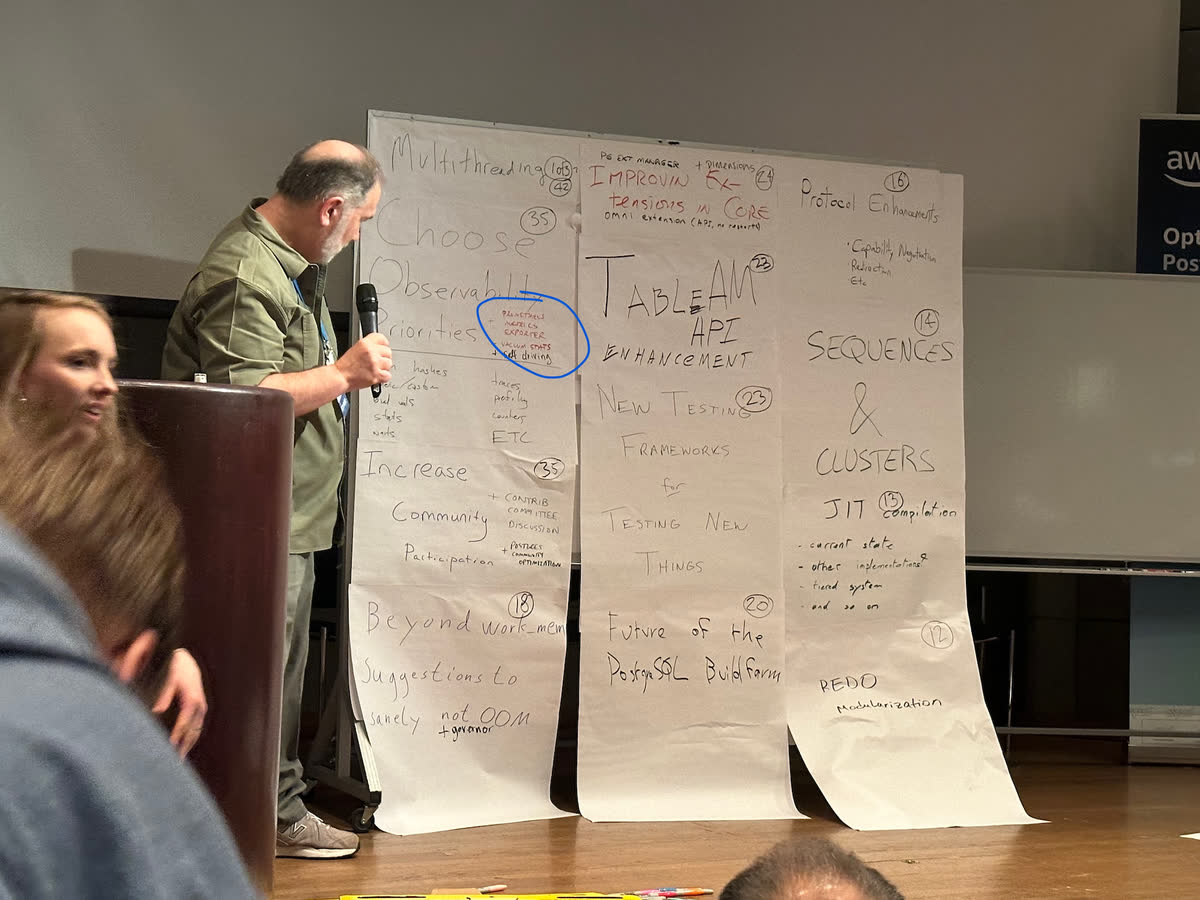 Multithreading
1 of 3
42
Choose
35
Observability
Priorities
+
METRICS
EXPORTER
VACUUM STATS
+ self driving
hashes
stats
waits
traces
counters
ETC
Increase
35
Community
Participation
+ CONTRIB
COMMITTEE
DISCUSSION
+ POSTGRES
COMMUNITY
OPTIMIZATION
18
Beyond work_mem
Suggestions to
sanely not OOM
+governor
PG EXT MANAGER
+ DIMENSIONS
24
IMPROVIN EX-
TENSIONS IN CORE
omni extension (API, no restarts)
23
TABLEAM
API
ENHANCEMENT
NEW TESTING
23
FRAMEWORKS
for
TESTING NEW
THINGS
20
Future of the
PostgreSQL Buildfarm
16
Protocol Enhancements
Capability Negotiation
Redirection
Etc
14
SEQUENCES
&
CLUSTERS
13
JIT compilation
- current state
- other implementations?
- tiered system
- and so on
12
REDO
Modularization
aw
Opt
Pos